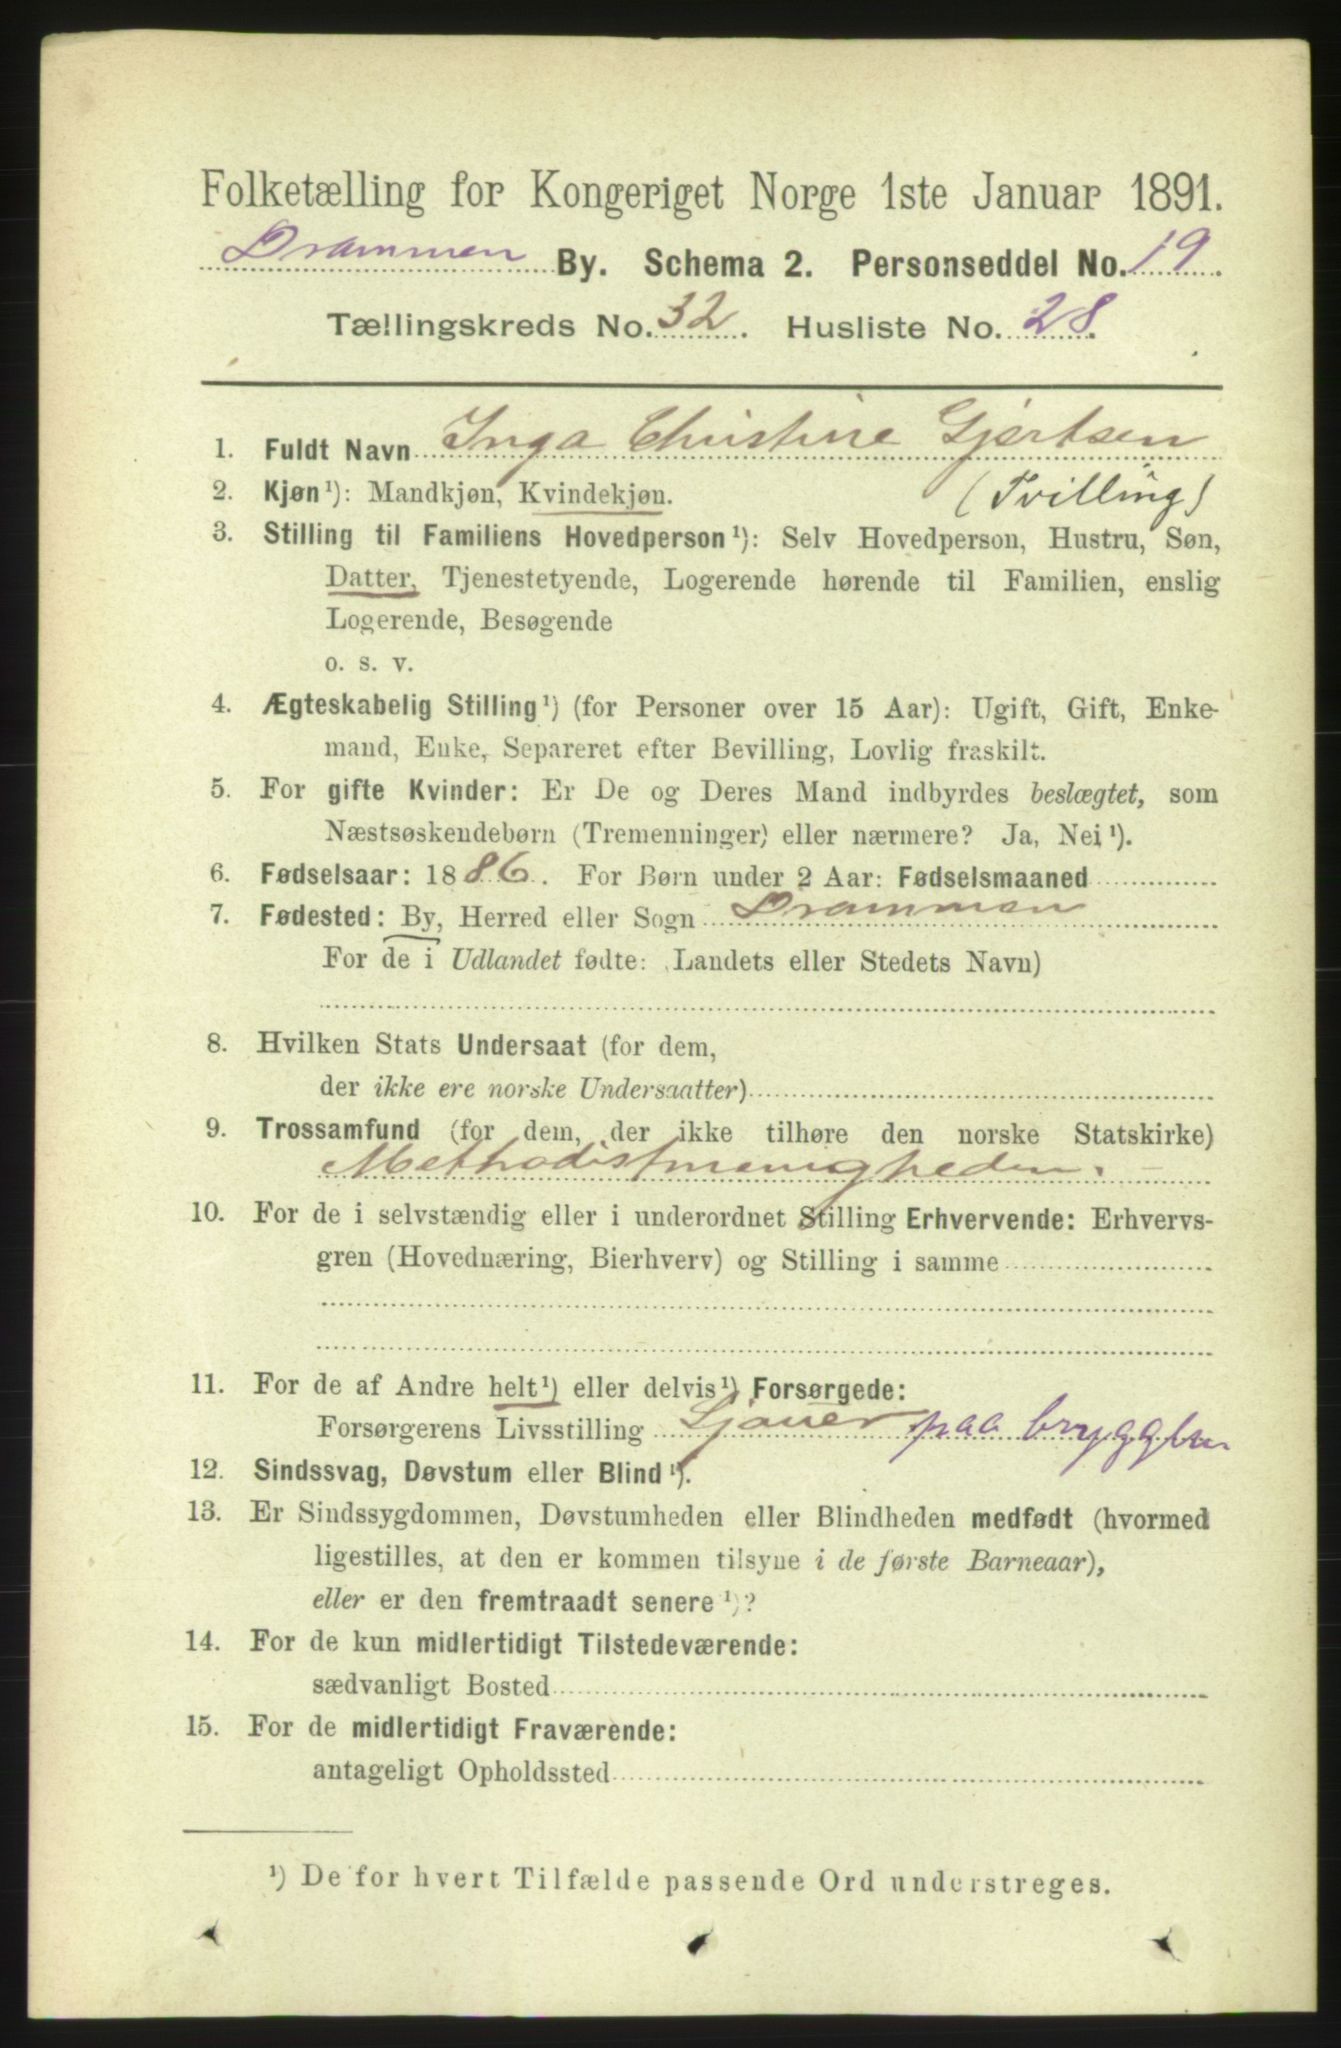 Folketælling for Kongeriget Norge 1ste Januar 1891.
Drammen By. Schema 2. Personseddel No. 19
Tællingskreds No. 32. Husliste No. 28.
1. Fuldt Navn Inga Christine Gjertsen
2. Kjøn¹): Mandkjøn, Kvindekjøn. (Tvilling)
3. Stilling til Familiens Hovedperson¹): Selv Hovedperson, Hustru, Søn,
Datter, Tjenestetyende, Logerende hørende til Familien, enslig
Logerende, Besøgende
o. s. v.
4. Ægteskabelig Stilling¹) (for Personer over 15 Aar): Ugift, Gift, Enke-
mand, Enke, Separeret efter Bevilling, Lovlig fraskilt.
5. For gifte Kvinder: Er De og Deres Mand indbyrdes beslægtet, som
Næstsøskendebørn (Tremenninger) eller nærmere? Ja, Nei¹).
6. Fødselsaar: 1886. For Børn under 2 Aar: Fødselsmaaned
7. Fødested: By, Herred eller Sogn Drammen
For de i Udlandet fødte: Landets eller Stedets Navn)
8. Hvilken Stats Undersaat (for dem,
der ikke ere norske Undersaatter)
9. Trossamfund (for dem, der ikke tilhøre den norske Statskirke)
Methodistmenigheden.
10. For de i selvstændig eller i underordnet Stilling Erhvervende: Erhvervs-
gren (Hovednæring, Bierhverv) og Stilling i samme
11. For de af Andre helt¹) eller delvis¹) Forsørgede:
Forsørgerens Livsstilling Sjauer paa
12. Sindssvag, Døvstum eller Blind¹).
13. Er Sindssygdommen, Døvstumheden eller Blindheden medfødt (hvormed
ligestilles, at den er kommen tilsyne i de første Barneaar),
eller er den fremtraadt senere¹)?
14. For de kun midlertidigt Tilstedeværende:
sædvanligt Bosted
15. For de midlertidigt Fraværende:
antageligt Opholdssted
¹) De for hvert Tilfælde passende Ord understreges.